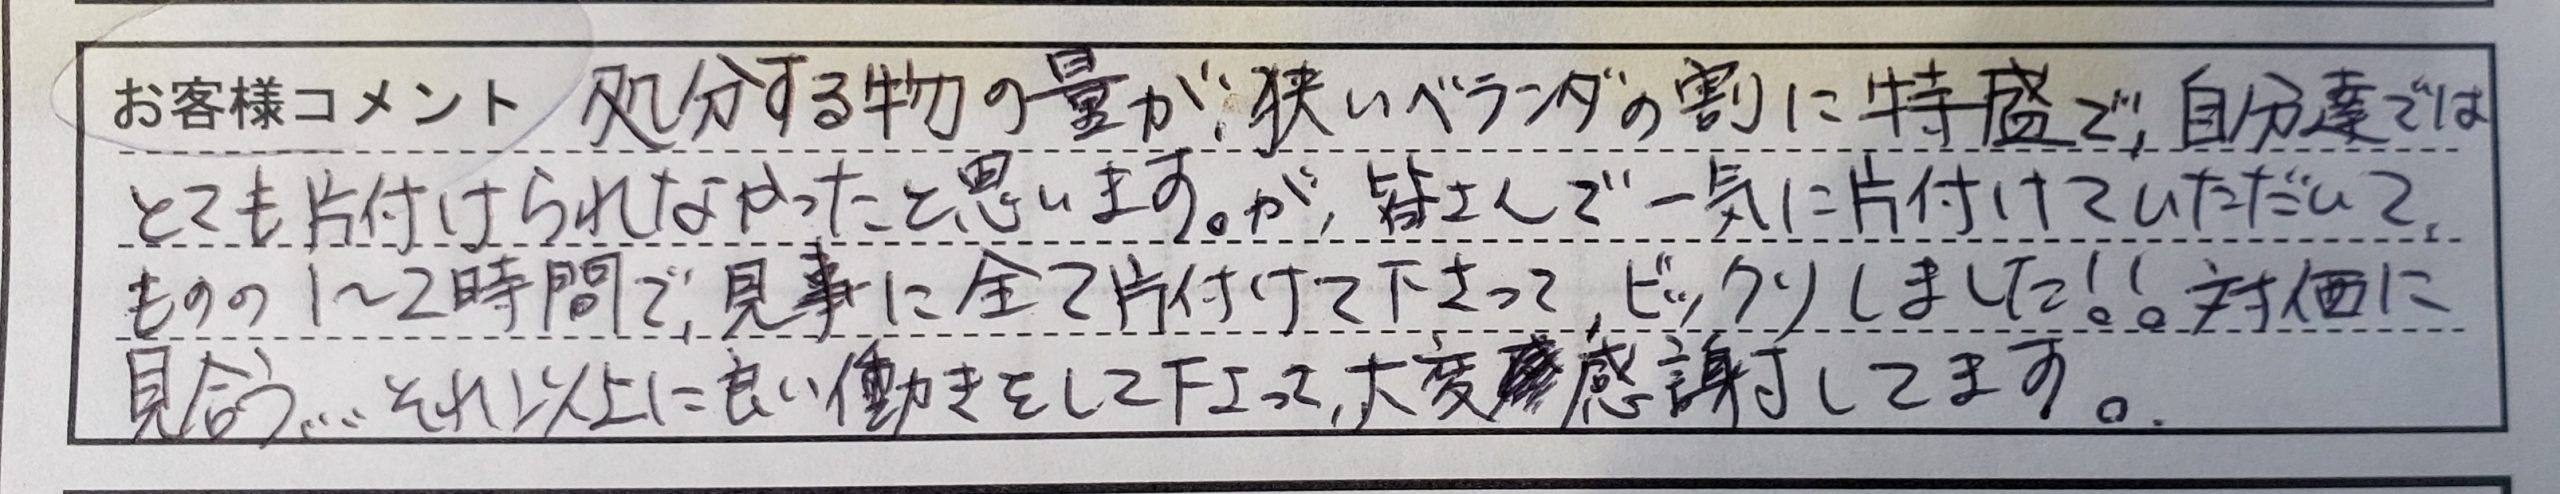 お客様コメント 処分する物の量が、狭いベランダの割に特盛で、自分達では
とても片付けられなかったと思います。が、皆さんで一気に片付けていただいて、
ものの1〜2時間で、見事に全て片付けて下さって、ビックリしました!! 対価に
見合う…それ以上に良い働きをして下さって、大変感謝してます。